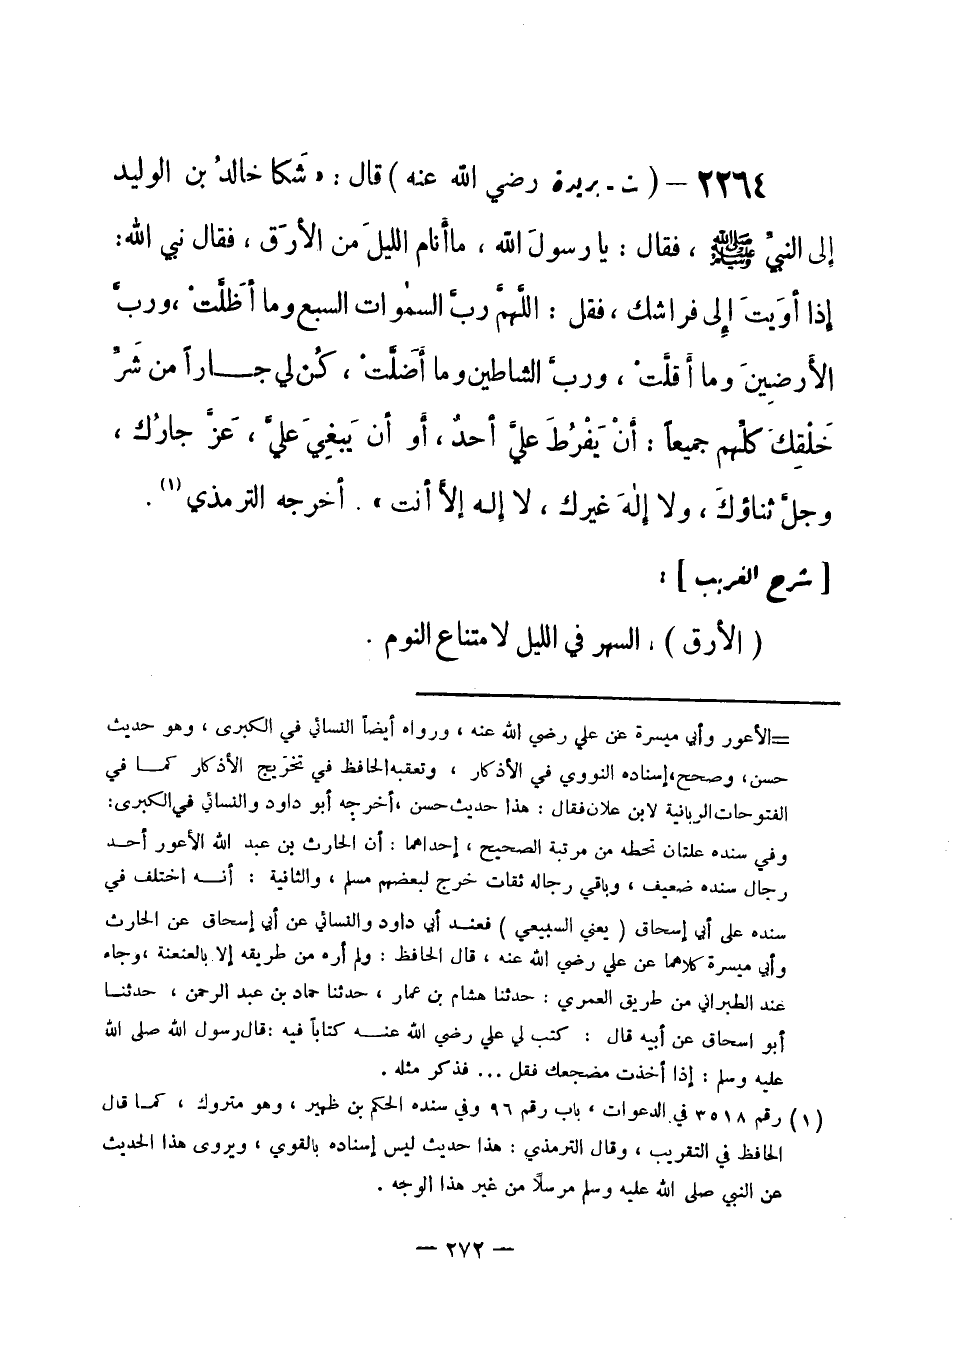 ٢٢٦٤ – ( ت ـ بريدة رضي الله عنه ) قال : « شَكا خالدُ بن الوليد
إلى النبيِّ ﷺ ، فقال : يا رسولَ الله ، ما أنام الليلَ من الأرَق ، فقال نبي الله :
إذا أوَيتَ إِلى فراشك ، فقل : اللَّهمَّ ربَّ السمٰوات السبع وما أظَلَّتْ ، وربَّ
الأَرضِينَ وما أقلَّتْ ، وربَّ الشاطين وما أضَلَّتْ ، كُن لي جـــاراً من شَرِّ
خَلْقِكَ كلِّهم جميعاً : أنْ يَفْرُطَ عليَّ أحدٌ ، أو أن يَبغِيَ عليَّ ، عَزَّ جارُك ،
وجلَّ ثناؤكَ ، ولا إِلٰهَ غيرك ، لا إله إلاَّ أنت » . أخرجه الترمذي (١) .
[ شرح الغريب ] :
( الأرق ) ، السهر في الليل لامتناع النوم .
=الأعور وأبي ميسرة عن علي رضي الله عنه ، ورواه أيضاً النسائي في الكبرى ، وهو حديث
حسن، وصحح، إسناده النووي في الأذكار ، وتعقبه الحافظ في تخريج الأذكار كمـا في
الفتوحات الربانية لابن علان فقال : هذا حديث حسن ، أخرجه أبو داود والنسائي في الكبرى:
وفي سنده علتان تحطه من مرتبة الصحيح ، إحداهما : أن الحارث بن عبد الله الأعور أحـد
رجال سنده ضعيف ، وباقي رجاله ثقات خرج لبعضهم مسلم ، والثانية : أنـه اختلف في
سنده على أبي إسحاق ( يعني السبيعي ) فعنـد أبي داود والنسائي عن أبي إسحاق عن الحارث
وأبي ميسرة كلاهما عن علي رضي الله عنه ، قال الحافظ : ولم أره من طريقه إلا بالعنعنة ،وجاء
عند الطبراني من طريق العمري : حدثنا هشام بن عمار ، حدثنا حماد بن عبد الرحمن ، حدثنـا
أبو اسحاق عن أبيه قال : كتب لي علي رضي الله عنـــه كتاباً فيه :قال رسول الله صلى الله
عليه وسلم : إذا أخذت مضجعك فقل ... فذكر مثله .
(١) رقم ٣٥١٨ في الدعوات ، باب رقم ٩٦ وفي سنده الحكم بن ظهير ، وهو متروك ، كمـا قال
الحافظ في التقريب ، وقال الترمذي : هذا حديث ليس إسناده بالقوي ، ويروى هذا الحديث
عن النبي صلى الله عليه وسلم مرسلاً من غير هذا الوجه .
– ٢٧٢ –